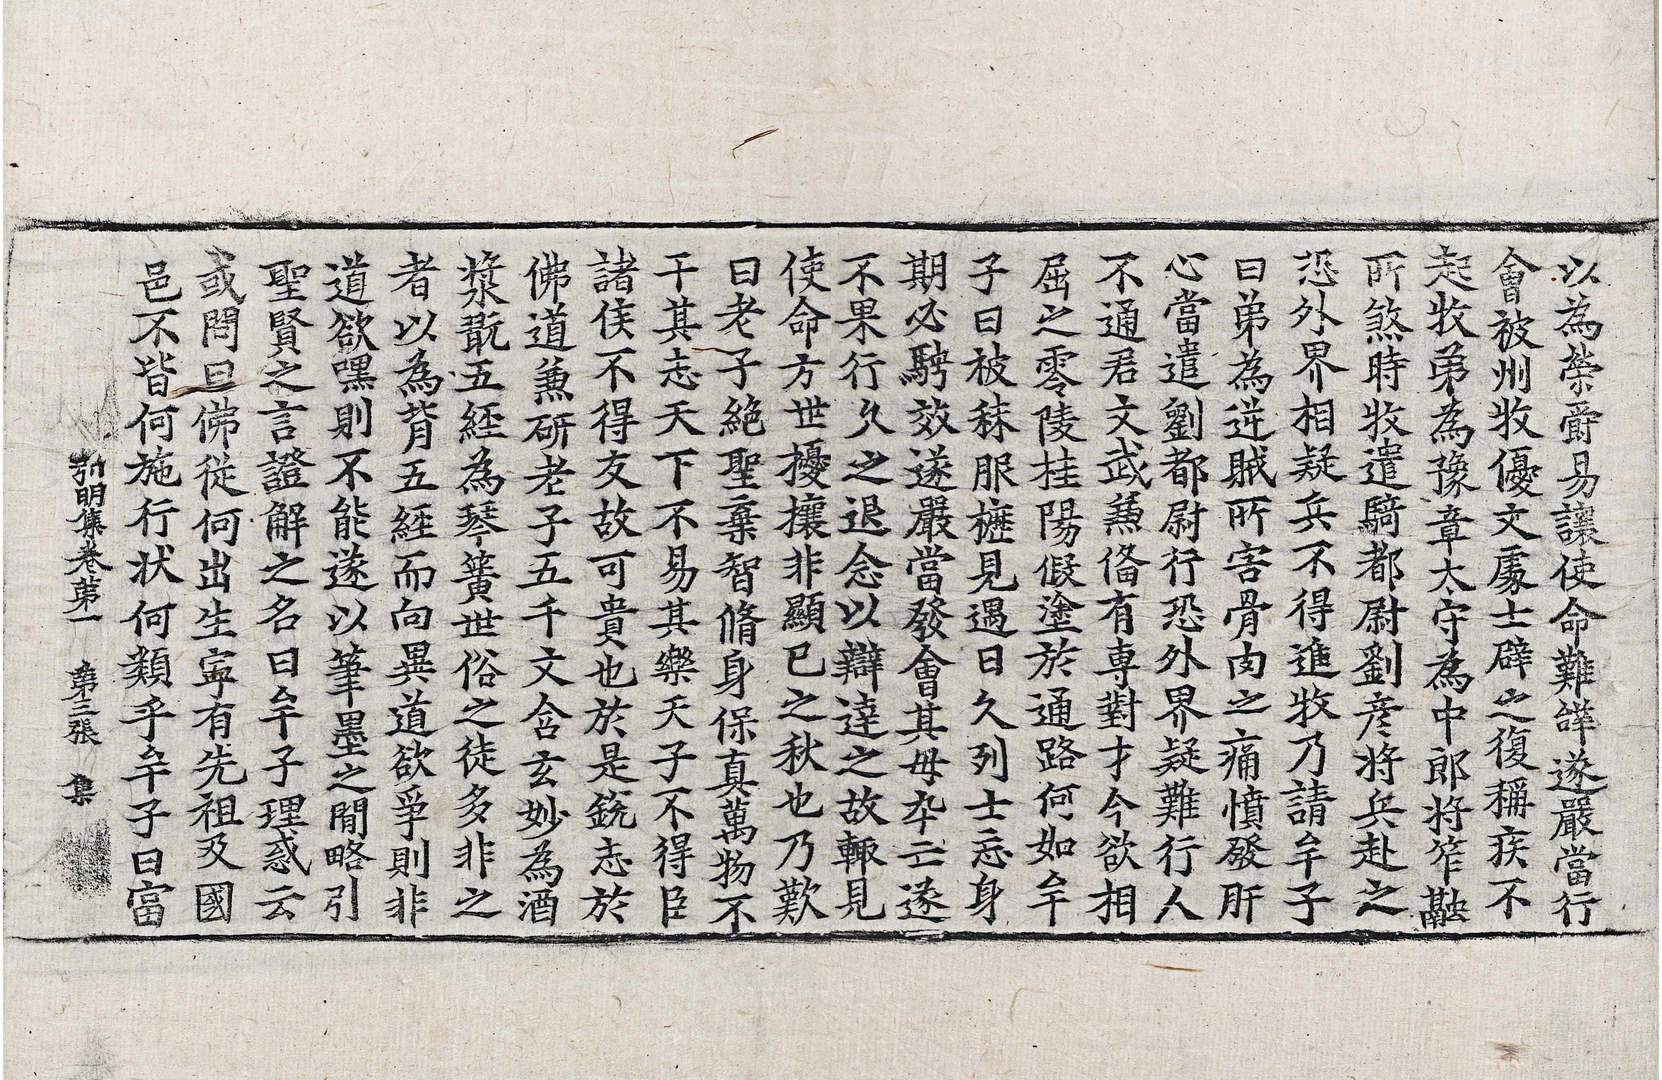 以為榮爵易讓使命難辝遂嚴當行
會被州牧優文處士辟之復稱疾不
起牧弟為豫章太守為中郎將笮融
所煞時牧遣騎都尉劉彦將兵赴之
恐外界相疑兵不得進牧乃請牟子
曰弟為逆賊所害骨肉之痛憤發肝
心當遣劉都尉行恐外界疑難行人
不通君文武兼俻有専對才今欲相
屈之零陵桂陽假塗於通路何如牟
子曰被秣服櫪見遇日久列士忘身
期必騁效遂嚴當發會其母卒亡遂
不果行久之退念以辯達之故輙見
使命方世擾攘非顯已之秋也乃歎
曰老子絕聖棄智脩身保真萬物不
干其志天下不易其樂天子不得臣
諸侯不得友故可貴也於是銳志於
佛道兼研老子五千文含玄妙為酒
漿翫五經為琴簧世俗之徒多非之
者以為背五經而向異道欲爭則非
道欲嘿則不能遂以筆墨之閒略引
聖賢之言證解之名曰牟子理惑云
或問曰佛従何出生寧有先祖及國
邑不皆何施行状何類乎牟子曰富
弘明集卷第一 第三張 集